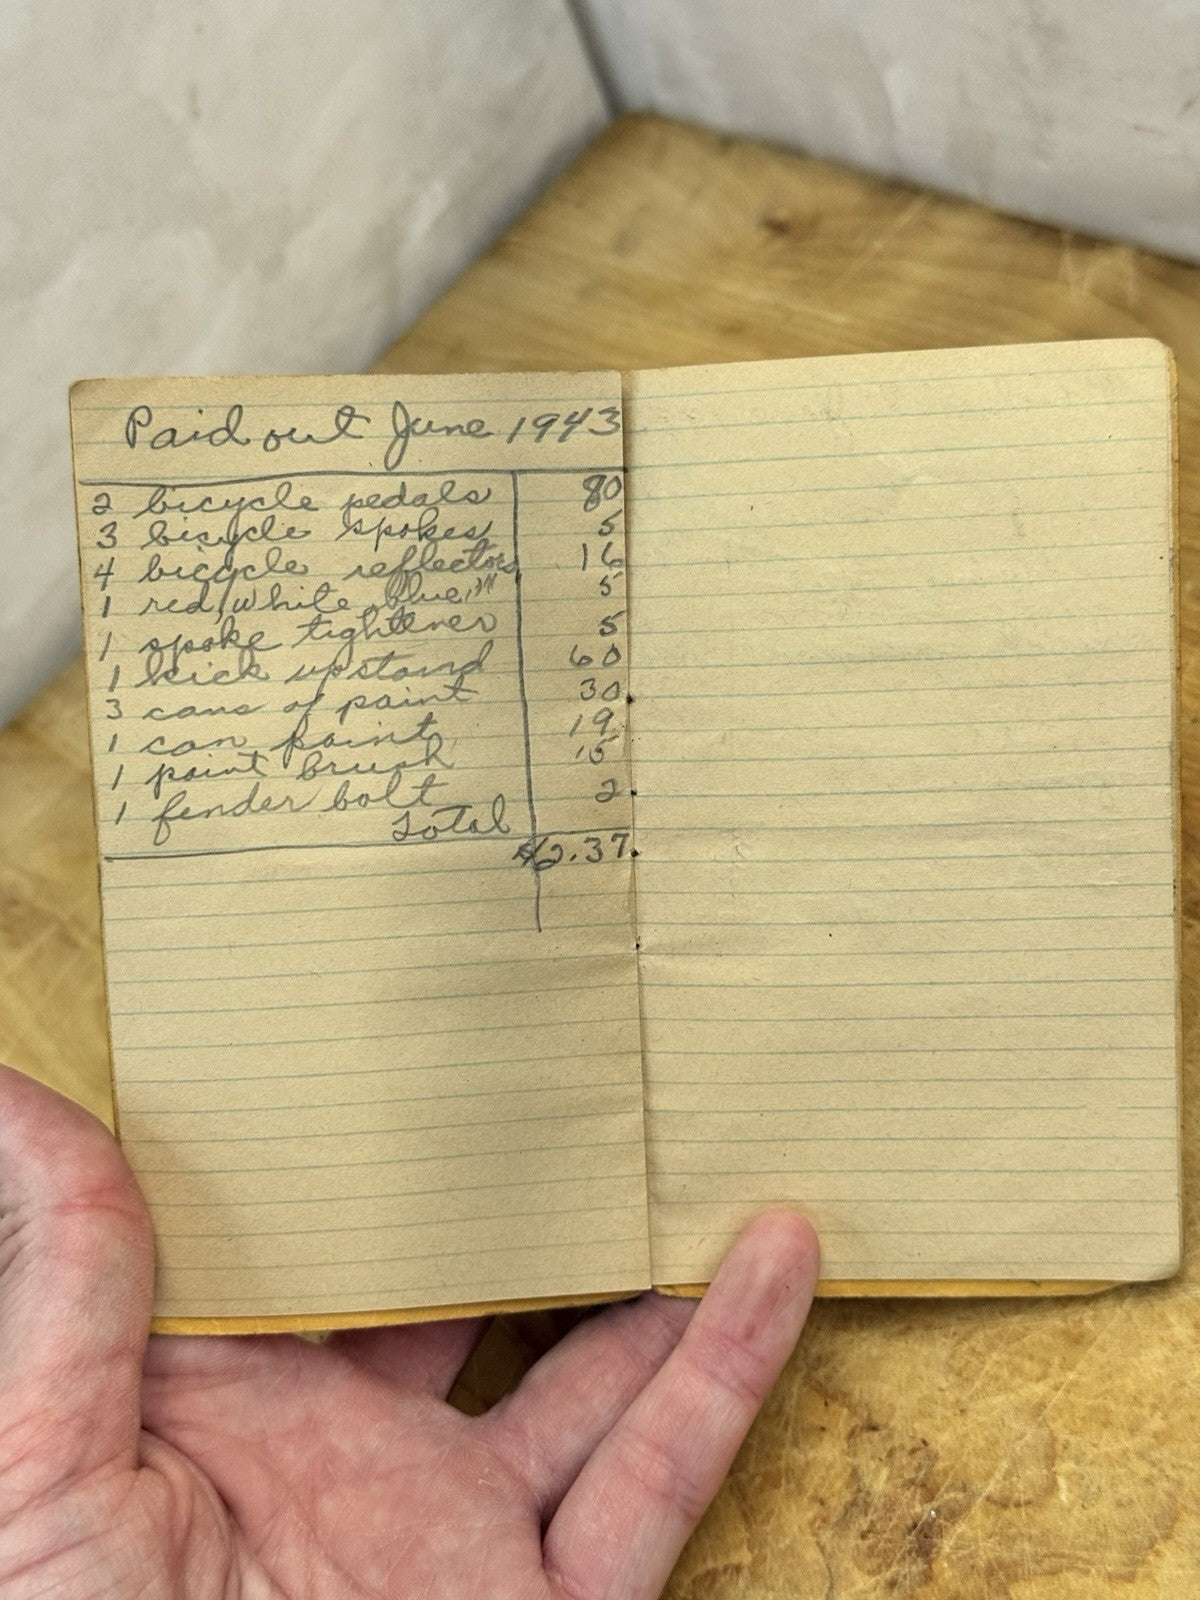 Paid out June 1943
2 bicycle pedals 80
3 bicycle spokes 5
4 bicycle reflectors 16
1 red, white blue, "" 5
1 spoke tightener 5
1 kick upstand 60
3 cans of paint 30
1 can paint 19
1 paint brush 15
1 fender bolt 2
Total
$2.37